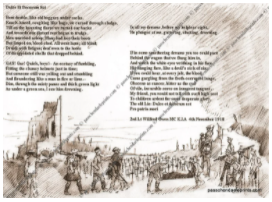 Dulce Et Decorum Est
Bent double, like old beggars under sacks,
Knock-kneed, coughing like hags, we cursed through sludge,
Till on the haunting flares we turned our backs
And towards our distant rest began to trudge.
Men marched asleep. Many had lost their boots
But limped on, blood-shod. All went lame; all blind;
Drunk with fatigue; deaf even to the hoots
Of
shells that dropped behind.
GAS! Gas! Quick, boys!- An ecstasy of fumbling,
Fitting the clumsy helmets just in time;
But someone still was yelling out and stumbling
And floundering like a man in fire or lime.-
Dim, through the misty panes and thick green light
As under a green sea, I saw him drowning.
In all my dreams, before my helpless sight,
He plunges at me, guttering, choking, drowning.
If in some smothering dreams you too could pace
Behind the wagon that we flung him in,
And watch the white eyes writhing in his face,
His hanging face, like a devil's sick of sin;
If you could hear, at every jolt, the blood
Come gargling from the froth-corrupted lungs,
Obscene as cancer, bitter as the cud
Of vile, incurable sores on innocent tongues,-
My friend, you would not tell with such high zest
To children ardent for some desperate glory,
The old Lie: Dulce et decorum est
Pro patria mori
2nd Lt Wilfred Owen MC K.I.A 4th November 1918